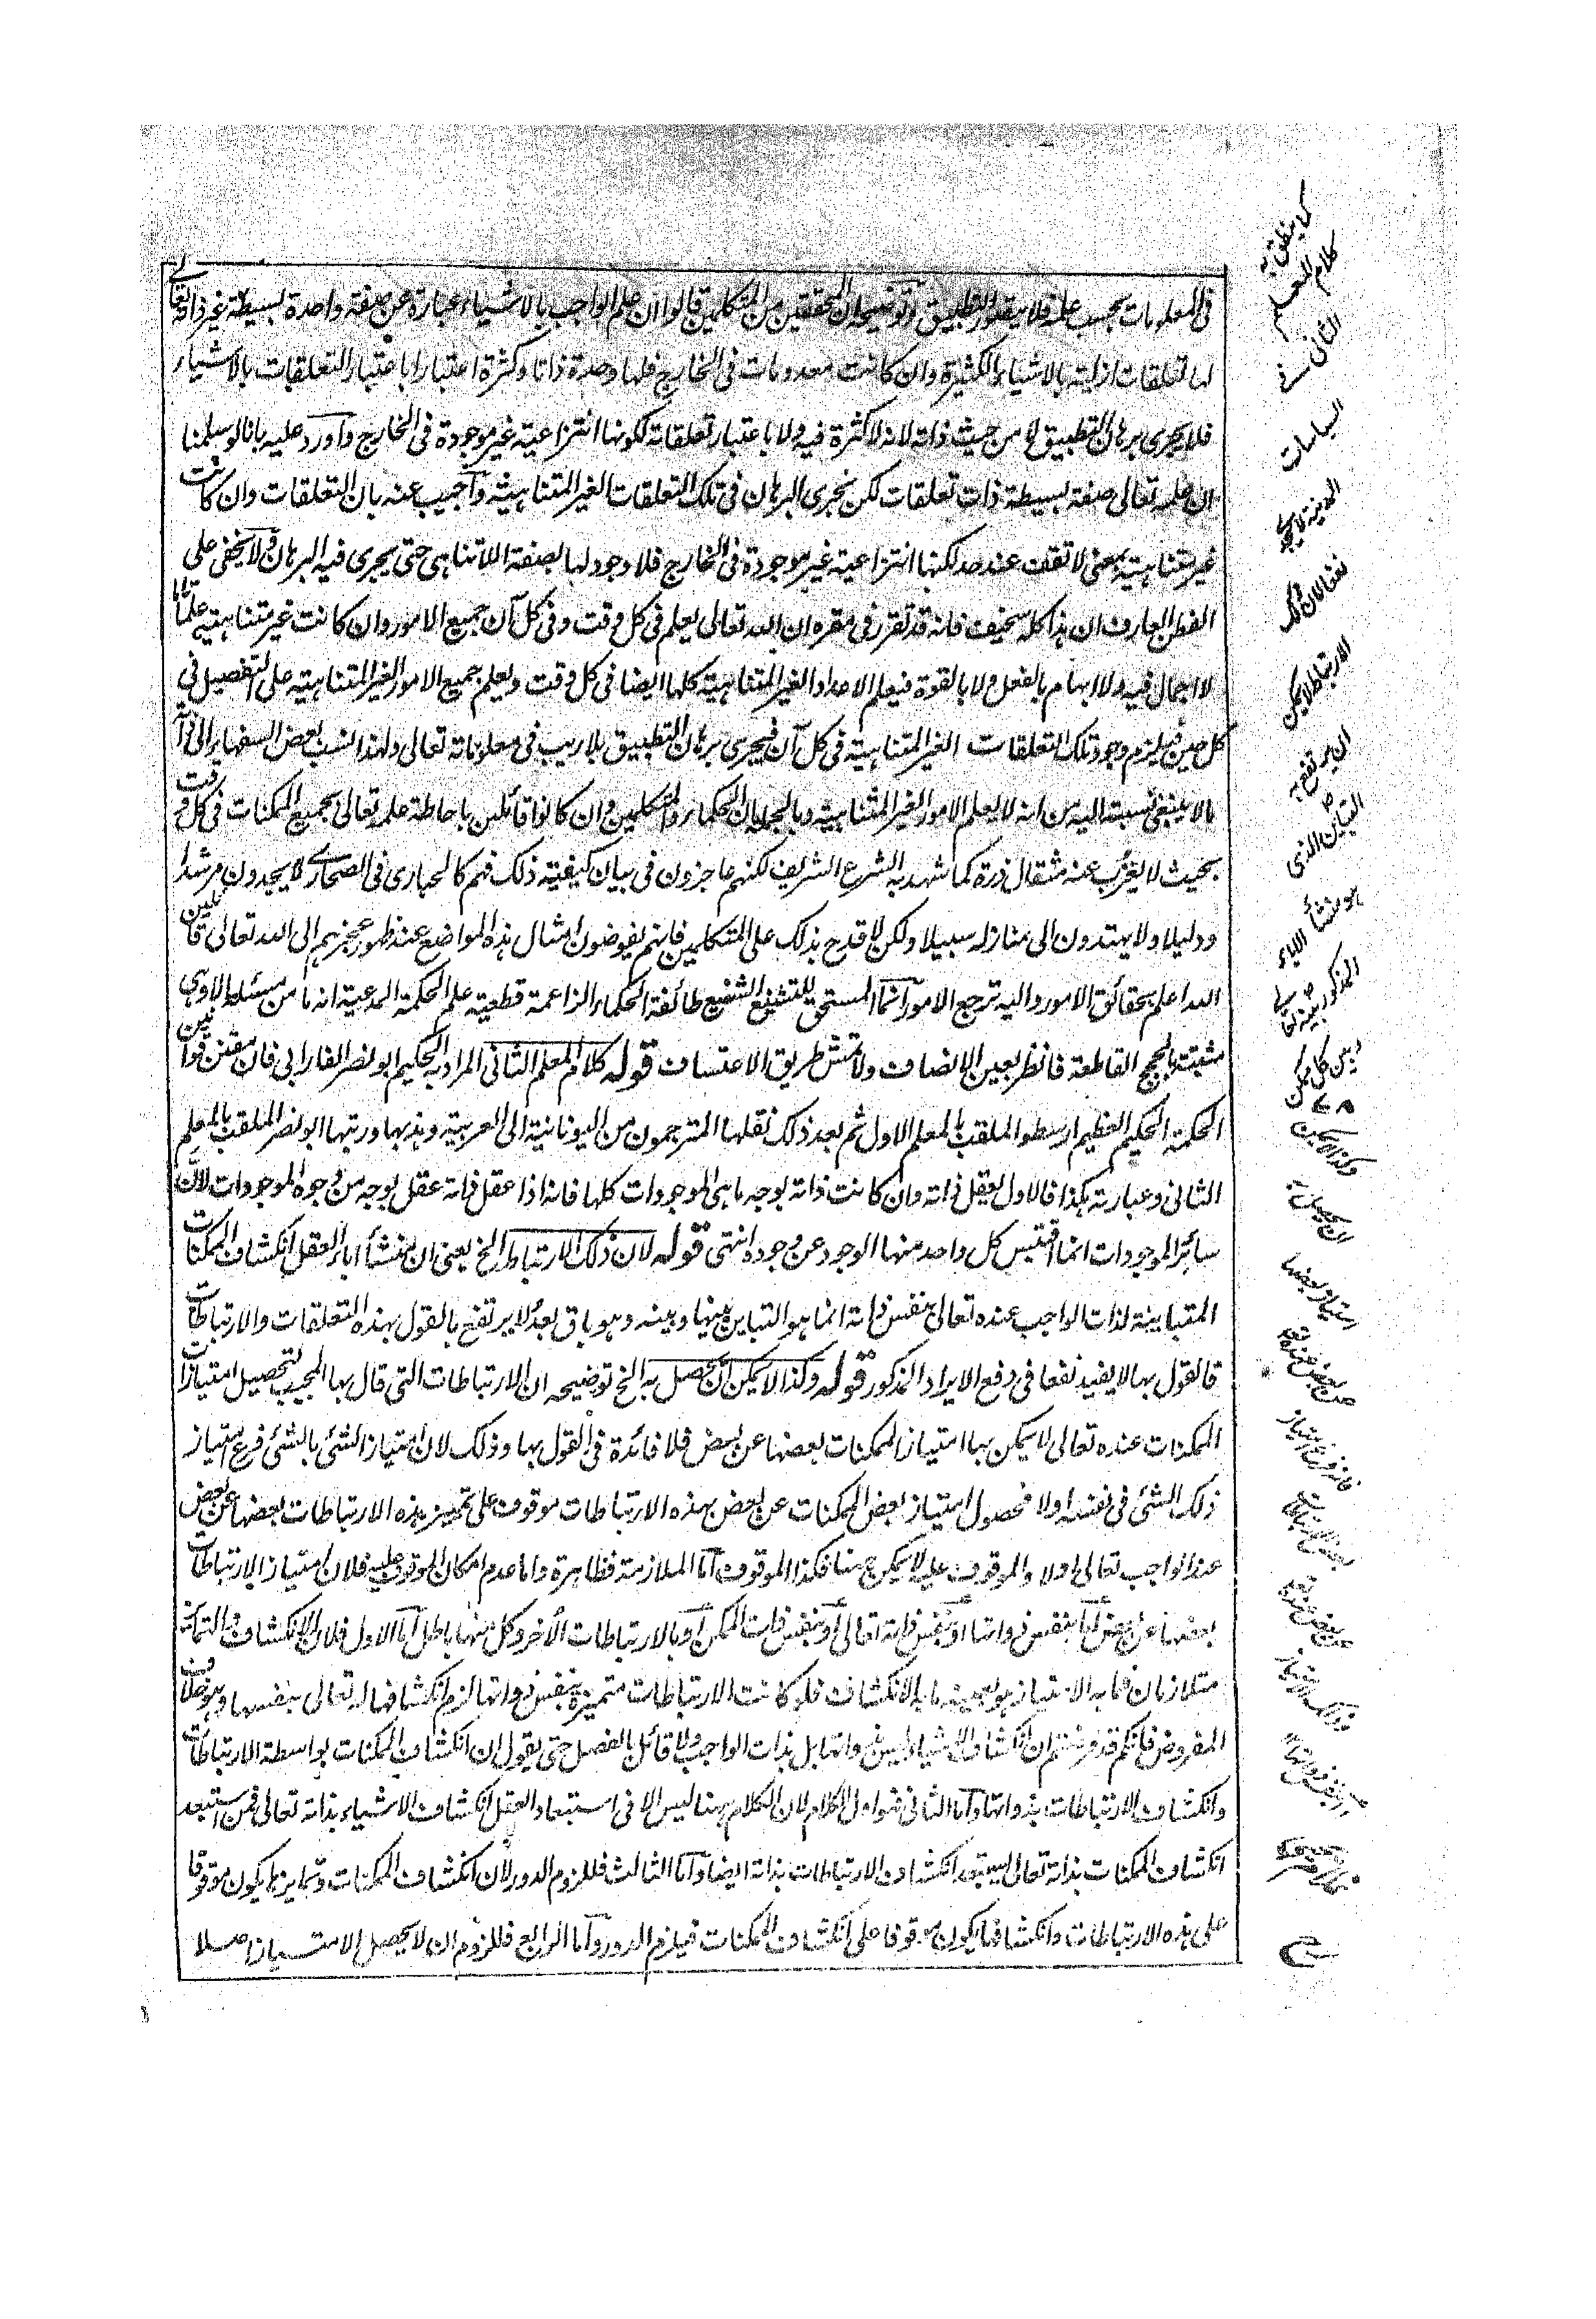 فى المعلومات بحسب علمه فلا يتصور التطبيق وتوضيحه ان المحققين من المتكلمين قالوا ان علم الواجب بالاشياء عبارة عن صفة واحدة بسيطة غير ذاته تعالى
لها تعلقات ازلية بالاشياء الكثيرة وان كانت معدومات فى الخارج فلها وحدة ذاتا وكثرة اعتبارا باعتبار التعلقات بالاشياء
فلا يجرى برهان التطبيق لا من حيث ذاته لانه لا كثرة فيه ولا باعتبار تعلقاته لكونها انتزاعية غير موجودة فى الخارج واورد عليه بانا لو سلمنا
ان علمه تعالى صفة بسيطة ذات تعلقات لكن نجرى البرهان فى تلك التعلقات الغير المتناهية واجيب عنه بان التعلقات وان كانت
غير متناهية بمعنى لا تقف عند حد لكنها انتزاعية غير موجودة فى الخارج فلا وجود لها بصفة اللاتناهى حتى يجرى فيه البرهان ولا يخفى على
الفطن العارف ان هذا كله سخيف فانه قد تقرر فى مقره ان الله تعالى يعلم فى كل وقت وفى كل آن جميع الامور وان كانت غير متناهية علما تاما
لا اجمال فيه ولا ابهام بالفعل ولا بالقوة فيعلم الاعداد الغير المتناهية كلها ايضا فى كل وقت ويعلم جميع الامور الغير المتناهية على التفصيل فى
كل حين فيلزم وجود تلك التعلقات الغير المتناهية فى كل آن فيجرى برهان التطبيق بلا ريب فى معلوماته تعالى ولهذا نسب بعض السفهاء الى الله
ما لا ينبغى نسبته اليه من انه لا يعلم الامور الغير المتناهية وبالجملة ان الحكماء والمتكلمين وان كانوا قائلين باحاطة علمه تعالى بجميع الممكنات فى كل وقت
بحيث لا يعزب عنه مثقال ذرة كما شهد به الشرع الشريف لكنهم عاجزون فى بيان كيفية ذلك فهم كالحيارى فى الصحارى لا يجدون مرشدا
ودليلا ولا يهتدون الى منازله سبيلا ولكن لا قدح بذلك على المتكلمين فانهم يفوضون امثال هذه المواضع عند ظهور عجزهم الى الله تعالى قائلين
الله اعلم بحقائق الامور واليه ترجع الامور انما المستحق للتشنيع الشنيع طائفة الحكماء الزاعمة قطعية علم الحكمة المدعية انه ما من مسئلة الا وهى
مثبتة بالحجج القاطعة فانظر بعين الانصاف ولا تمش طريق الاعتساف قوله كلام المعلم الثانى المراد به الحكيم ابو نصر الفارابى فان مقنن قوانين
الحكمة الحكيم العظيم ارسطو الملقب بالمعلم الاول ثم بعد ذلك نقلها المترجمون من اليونانية الى العربية وهذبها ورتبها ابو نصر الملقب بالمعلم
الثانى وعبارته هكذا فالاول يعقل ذاته وان كانت ذاته بوجه ما هى الموجودات كلها فانه اذا عقل ذاته عقل بوجه من وجوه الموجودات لان
سائر الموجودات انما اقتبس كل واحد منها الوجود عن وجوده انتهى قوله لان ذلك الارتباط الخ يعنى ان منشأ اباء العقل انكشاف الممكنات
المتباينة لذات الواجب عنده تعالى بنفس ذاته انما هو التباين بينها وبينه وهو باق بعد لا يرتفع بالقول بهذه التعلقات والارتباطات
فالقول بها لا يفيد نفعا فى دفع الايراد المذكور قوله وكذا لا يمكن ان يحصل به الخ توضيحه ان الارتباطات التى قال بها المجيب لتحصيل امتيازات
الممكنات عنده تعالى لا يمكن بها امتياز الممكنات بعضها عن بعض فلا فائدة فى القول بها وذلك لان امتياز الشئ بالشئ فرع امتياز
ذلك الشئ فى نفسه اولا فحصول امتياز بعض الممكنات عن بعض بهذه الارتباطات موقوف على تميز هذه الارتباطات بعضها عن بعض
عند الواجب تعالى اولا والموقوف عليه لا يمكن ههنا فكذا الموقوف اما الملازمة فظاهرة واما عدم امكان الموقوف عليه فلان امتياز الارتباطات
بعضها عن بعض اما بنفس ذواتها او بنفس ذاته تعالى او بنفس ذات الممكن او بالارتباطات الأخر وكل منها باطل اما الاول فلان الانكشاف والتمايز
متلازمان فما به الامتياز هو بعينه ما به الانكشاف فلو كانت الارتباطات متميزة بنفس ذواتها لزم انكشافها له تعالى بنفسها وهو خلاف
المفروض فانكم قد فرضتم ان انكشاف الاشياء ليس بذواتها بل بذات الواجب ولا قائل بالفصل حتى يقول ان انكشاف الممكنات بواسطة الارتباطات
وانكشاف الارتباطات بذواتها واما الثانى فهو اول الكلام لان الكلام ههنا ليس الا فى استبعاد العقل انكشاف الاشياء بذاته تعالى فمن استبعد
انكشاف الممكنات بذاته تعالى يستبعد انكشاف الارتباطات بذاته ايضا واما الثالث فللزوم الدور لان انكشاف الممكنات وتمايزها يكون موقوفا
على هذه الارتباطات وانكشافها يكون موقوفا على انكشاف الممكنات فيلزم الدور واما الرابع فللزوم ان لا يحصل الامتياز اصلا
كما ينطق به
كلام المعلم
الثانى فى
السياسات
المدنية لا يجدى
نفعا لان ذلك
الارتباط لا يمكن
ان يرتفع به
التباين الذى
هو منشأ الاباء
المذكور بينه تعالى
وبين كل ممكن
وكذا لا يمكن
ان يحصل به
امتياز بعضها
عن بعض عنده تعالى
فانه فرع امتياز
بعض الارتباطات
عن بعض عنده تعالى
وذلك الامتياز